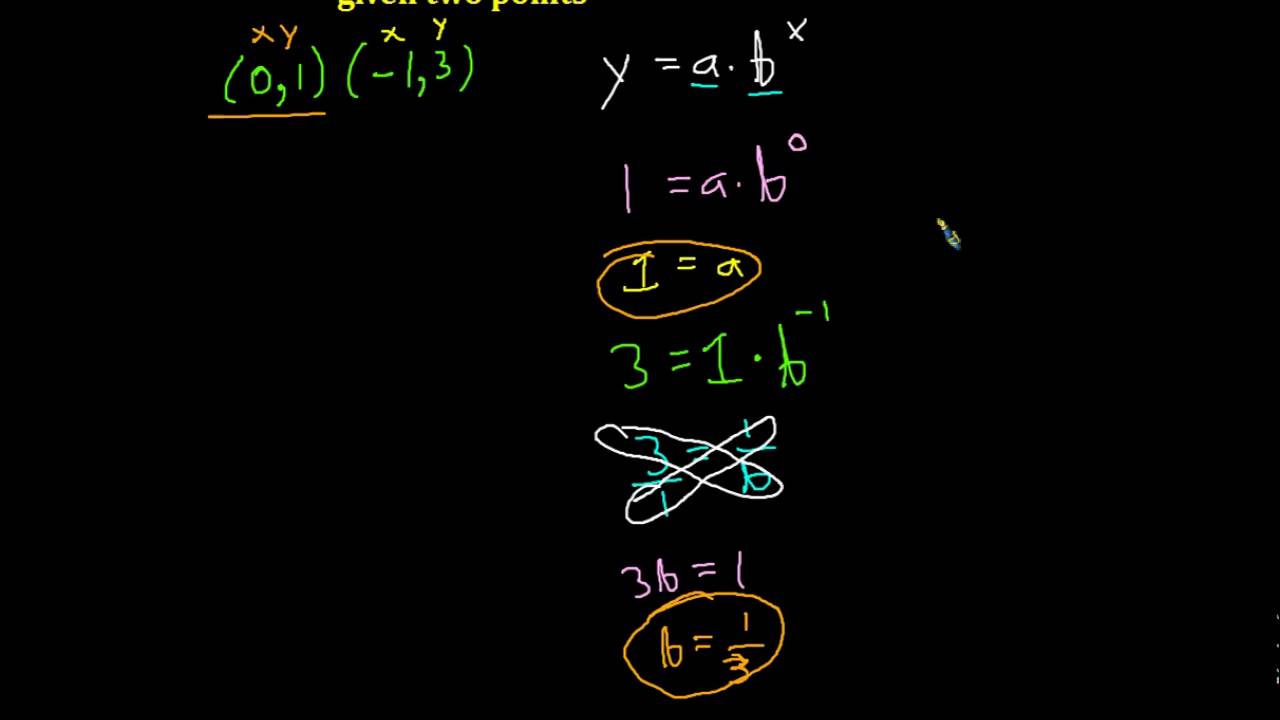 given two points
x y x y
(0,1) (-1,3)
y = a · b^x
1 = a · b^0
1 = a
3 = 1 · b^-1
3/1 = 1/b
3b = 1
b = 1/3